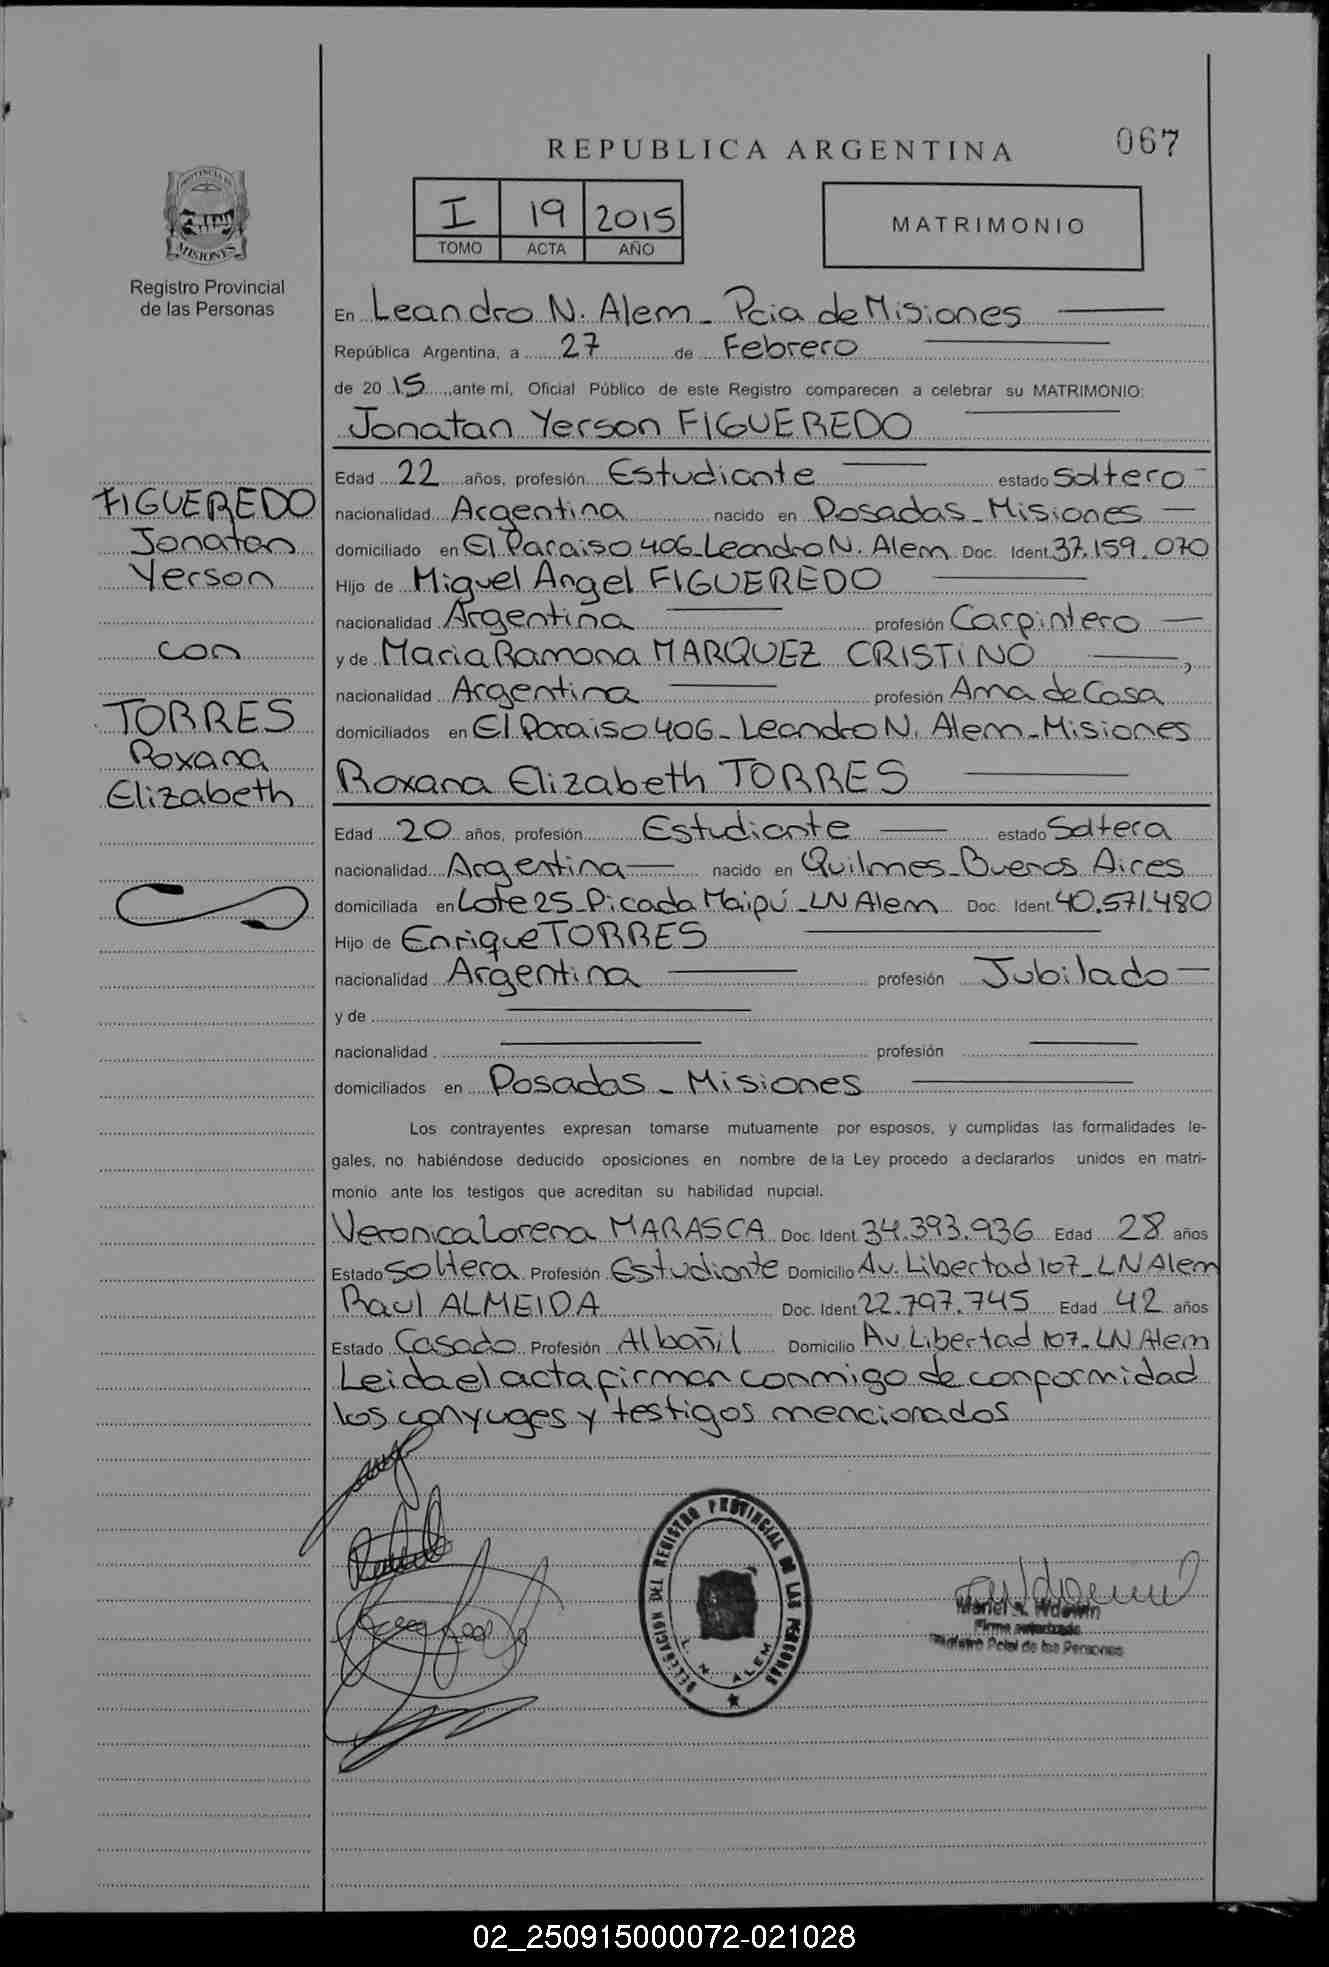 REPUBLICA ARGENTINA
067
I 19 2015
TOMO ACTA AÑO
MATRIMONIO
PROVINCIA DE
MISIONES
Registro Provincial
de las Personas
FIGUEREDO
Jonatan
Yerson
con
TORRES
Roxana
Elizabeth
En Leandro N. Alem - Pcia de Misiones
República Argentina, a 27 de Febrero
de 20 15, ante mi, Oficial Público de este Registro comparecen a celebrar su MATRIMONIO:
Jonatan Yerson FIGUEREDO
Edad 22 años, profesión Estudiante estado Soltero
nacionalidad Argentina nacido en Posadas - Misiones
domiciliado en El Paraiso 406 - Leandro N. Alem Doc. Ident. 37.159.070
Hijo de Miguel Angel FIGUEREDO
nacionalidad Argentina profesión Carpintero
y de Maria Ramona MARQUEZ CRISTINO ,
nacionalidad Argentina profesión Ama de Casa
domiciliados en El Paraiso 406 - Leandro N. Alem - Misiones
Roxana Elizabeth TORRES
Edad 20 años, profesión Estudiante estado Soltera
nacionalidad Argentina nacido en Quilmes - Buenos Aires
domiciliada en Lote 25 - Picada Maipú - LN Alem Doc. Ident. 40.571.480
Hijo de Enrique TORRES
nacionalidad Argentina profesión Jubilado
y de
nacionalidad profesión
domiciliados en Posadas - Misiones
Los contrayentes expresan tomarse mutuamente por esposos, y cumplidas las formalidades le-
gales, no habiéndose deducido oposiciones en nombre de la Ley procedo a declararlos unidos en matri-
monio ante los testigos que acreditan su habilidad nupcial.
Veronica Lorena MARASCA Doc. Ident. 34.393.936 Edad 28 años
Estado Soltera Profesión Estudiante Domicilio Av. Libertad 107 - LN Alem
Raul ALMEIDA Doc. Ident. 22.797.745 Edad 42 años
Estado Casado Profesión Albañil Domicilio Av. Libertad 107 - LN Alem
Leida el acta firman conmigo de conformidad
los conyuges y testigos mencionados
DELEGACION DEL REGISTRO PROVINCIAL DE LAS PERSONAS
L. N. ALEM
Firma autorizada
Registro Pcial de las Personas
02_250915000072-021028